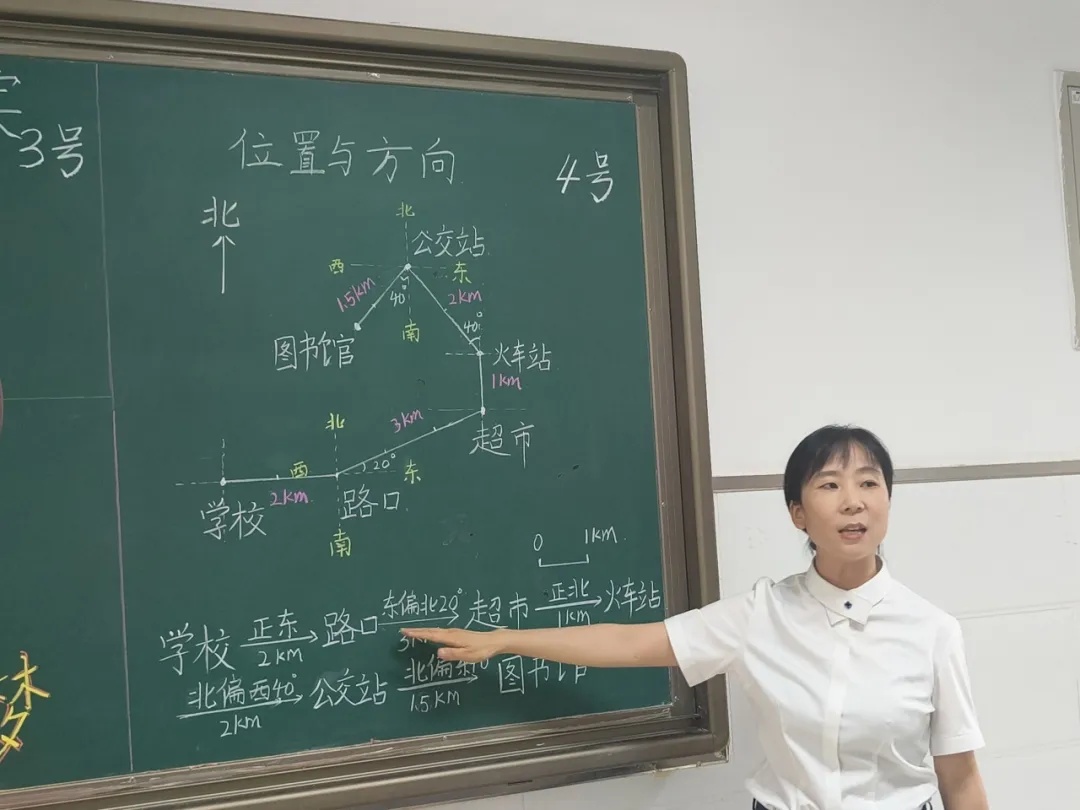 3号
位置与方向
4号
北
北
公交站
西
东
1.5km
40°
2km
南
40°
图书馆
火车站
1km
3km
超市
北
西
20°
东
2km
学校
路口
南
0 1km
学校 正东 2km 路口 东偏北20° 超市 正北 1km 火车站
北偏西40° 2km 公交站 北偏 1.5km 图书馆